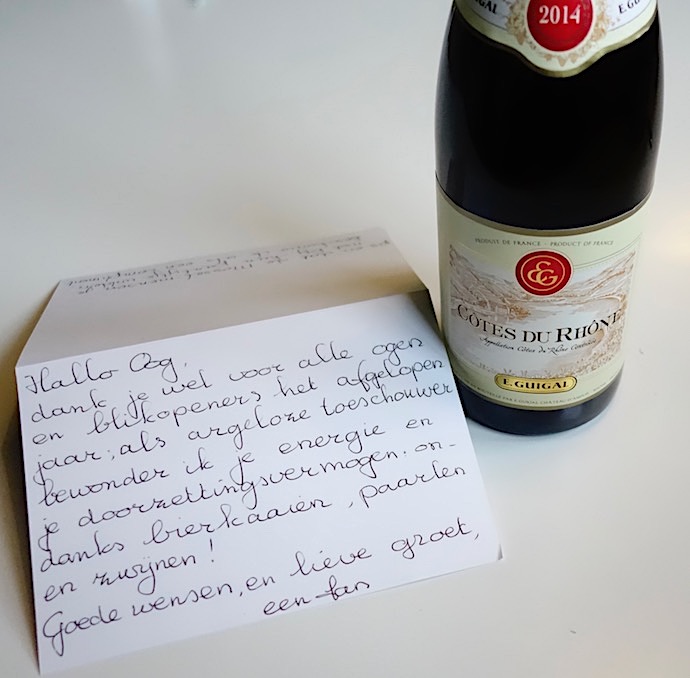 2014
E.GUIGAL
PRODUIT DE FRANCE - PRODUCT OF FRANCE
EG
CÔTES DU RHÔNE
Appellation Côtes du Rhône Contrôlée
E.GUIGAL
Hallo Oog,
dank je wel voor alle ogen
en blikopeners het afgelopen
jaar; als argeloze toeschouwer
bewonder ik je energie en
je doorzettingsvermogen. on-
danks bierkaaien, paarlen
en zwijnen!
Goede wensen, en lieve groet,
een fan